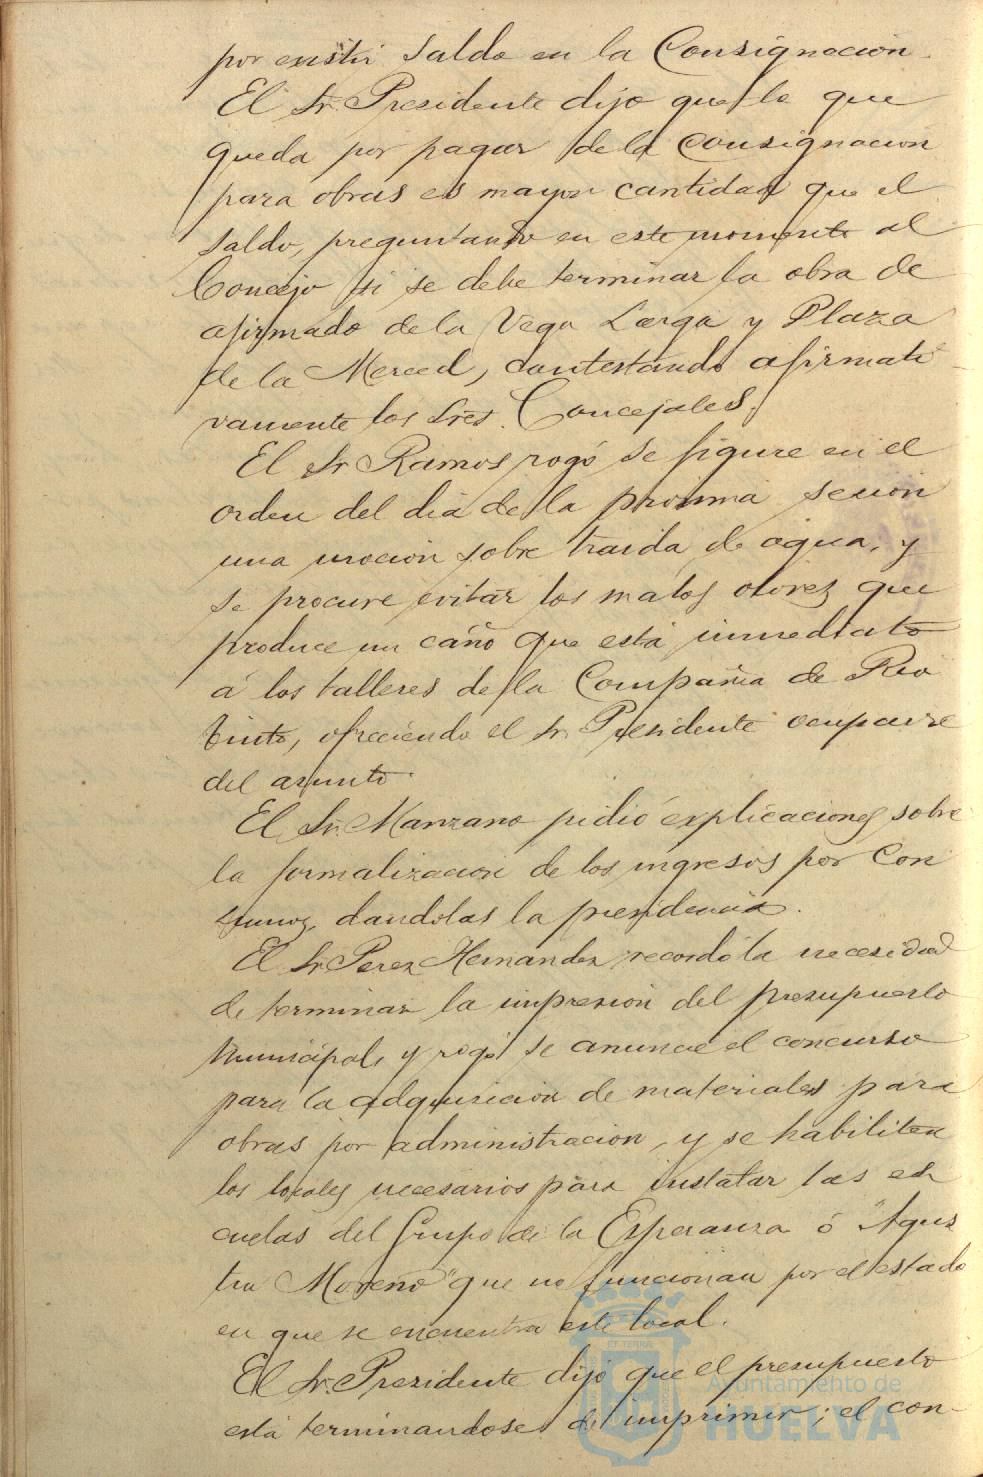 por existir saldo en la Consignacion.
El Sr. Presidente dijo que lo que
queda por pagar de la consignacion
para obras es mayor cantidad que el
saldo, preguntando en este momento al
Concejo si se debe terminar la obra de
afirmado de la Vega Larga y Plaza
de la Merced, contestando afirmati
vamente los Sres. Concejales.
El Sr Ramos rogó se figure en el
orden del dia de la proxima sesion
una mocion sobre traida de agua, y
se procure evitar los malos olores que
produce un caño que está inmediato
á los talleres de la Compañia de Rio
tinto, ofreciendo el Sr. Presidente ocuparse
del asunto.
El Sr. Manzano pidió explicaciones sobre
la formalizacion de los ingresos por Con
sumos, dandolas la presidencia.
El Sr. Perez Hernandez recordó la necesidad
de terminar la impresion del presupuesto
Municipal, y rogó se anuncie el concurso
para la adquisicion de materiales para
obras por administracion, y se habiliten
los locales necesarios para instalar las es
cuelas del Grupo de la Esperanza ó "Agus
tin Moreno" que no funcionan por el estado
en que se encuentra este local.
El Sr. Presidente dijo que el presupuesto
está terminandose de imprimir; el con-
Ayuntamiento de
HUELVA